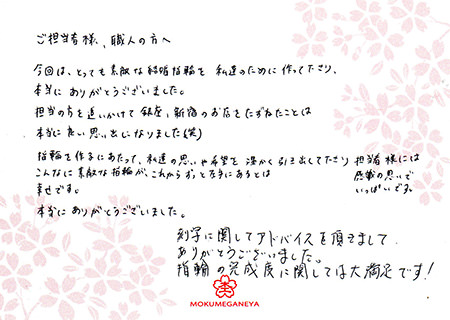 ご担当者様、職人の方へ
今回は、とっても素敵な結婚指輪を 私達のために作って下さり、
本当にありがとうございました。
担当の方を追いかけて銀座、新宿のお店をたずねたことは
本当に良い思い出になりました(笑)
指輪を作るにあたって、私達の思いや希望を 温かく引き出して下さり 担当者様には
こんなに素敵な指輪が、これからずっと左手にあるとは 感謝の思いで
幸せです。 いっぱいです。
本当にありがとうございました。
刻字に関してアドバイスを頂きまして
ありがとうございました。
指輪の完成度に関しては大満足です!
MOKUMEGANEYA